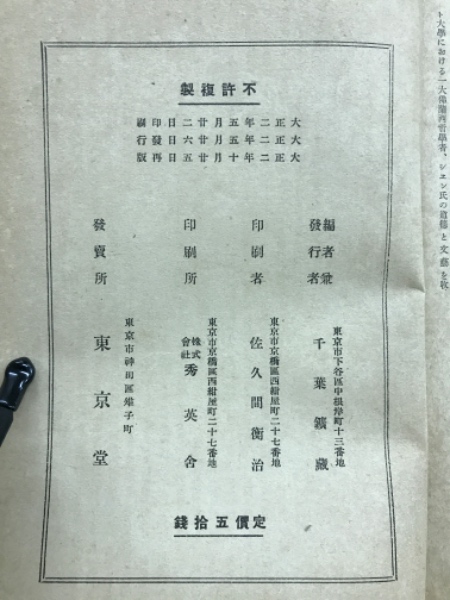 ト大學における一大佛蘭西哲學者、
不許複製
大正二年五月廿二日印刷
大正二年五月廿六日發行
大正二年十月廿五日再版
編者兼
發行者
東京市下谷區中根岸町十三番地
千葉鑛藏
印刷者
東京市京橋區西紺屋町二十七番地
佐久間衡治
印刷所
東京市京橋區西紺屋町二十七番地
株式會社秀英舍
發賣所
東京市神田區雉子町
東京堂
定價五拾錢